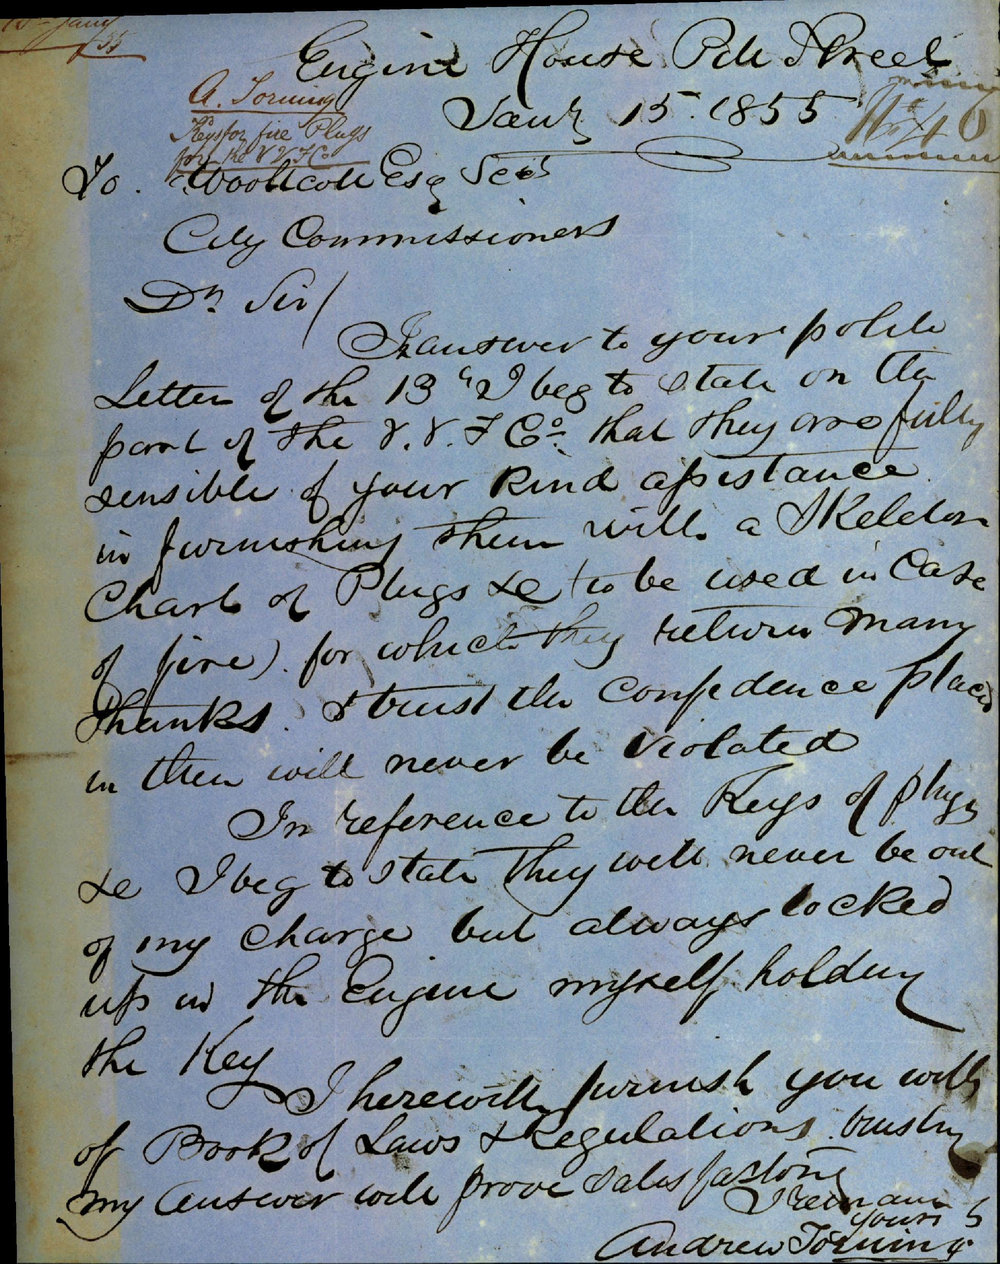 15th Jany
/55
Engine House Pitt Street
Jany 15th 1855
A. Torning
Keys for fire Plugs
for the V V F Co
No 40
To. Woollcott Esq Secy
City Commissioners
Dr Sir/
In answer to your polite
Letter of the 13th I beg to state on the
part of the V. V. F Co. that they are fully
sensible of your kind assistance
in furnishing them with a Skeleton
Chart of Plugs &c (to be used in Case
of fire) for which they return many
thanks. & trust the confidence placed
in them will never be violated
In reference to the Keys of plugs
&c I beg to state they will never be out
of my charge but always locked
up in the Engine myself holding
the Key
I herewith furnish you with
of Book of Laws & Regulations. trusting
my answer will prove satisfactory
I remain
Yours
Andrew Torning